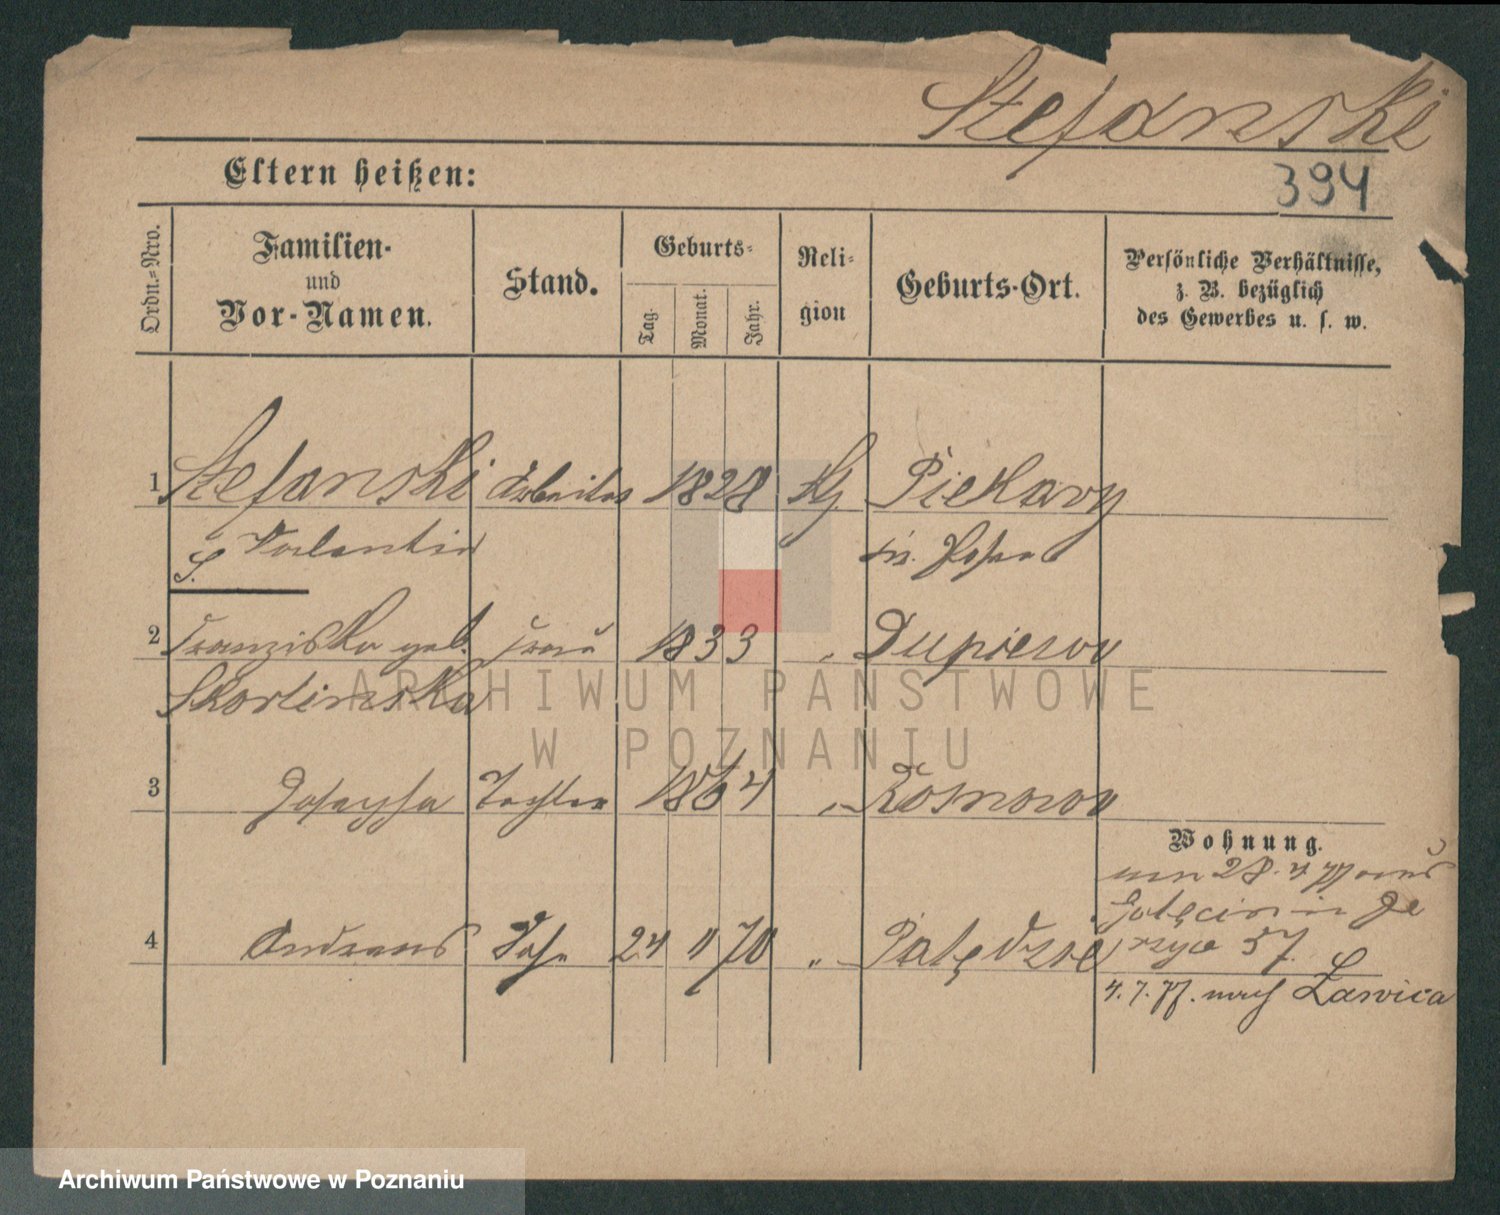 Stefanski
Eltern heißen:
394
Ordn.-Nro.
Familien-
und
Vor-Namen.
Stand.
Geburts-
Tag.
Monat.
Jahr.
Reli-
gion
Geburts-Ort.
Persönliche Verhältnisse,
z. B. bezüglich
des Gewerbes u. s. w.
1 Stefanski Arbeiter 1828 Piekary
Valentin Kr. Posen
2 Franziska geb. Frau 1833 " Dupiewo
Skorlinska
3 Josepha Tochter 1864 " Rosnowo
Wohnung.
am 28. 4 77 aus
Golęcin in Je
4 Andreas Sohn 24 11 70 " Palędzie
rzyce 57.
4. 7. 77. nach Ławica
ARCHIWUM PAŃSTWOWE
W POZNANIU
Archiwum Państwowe w Poznaniu